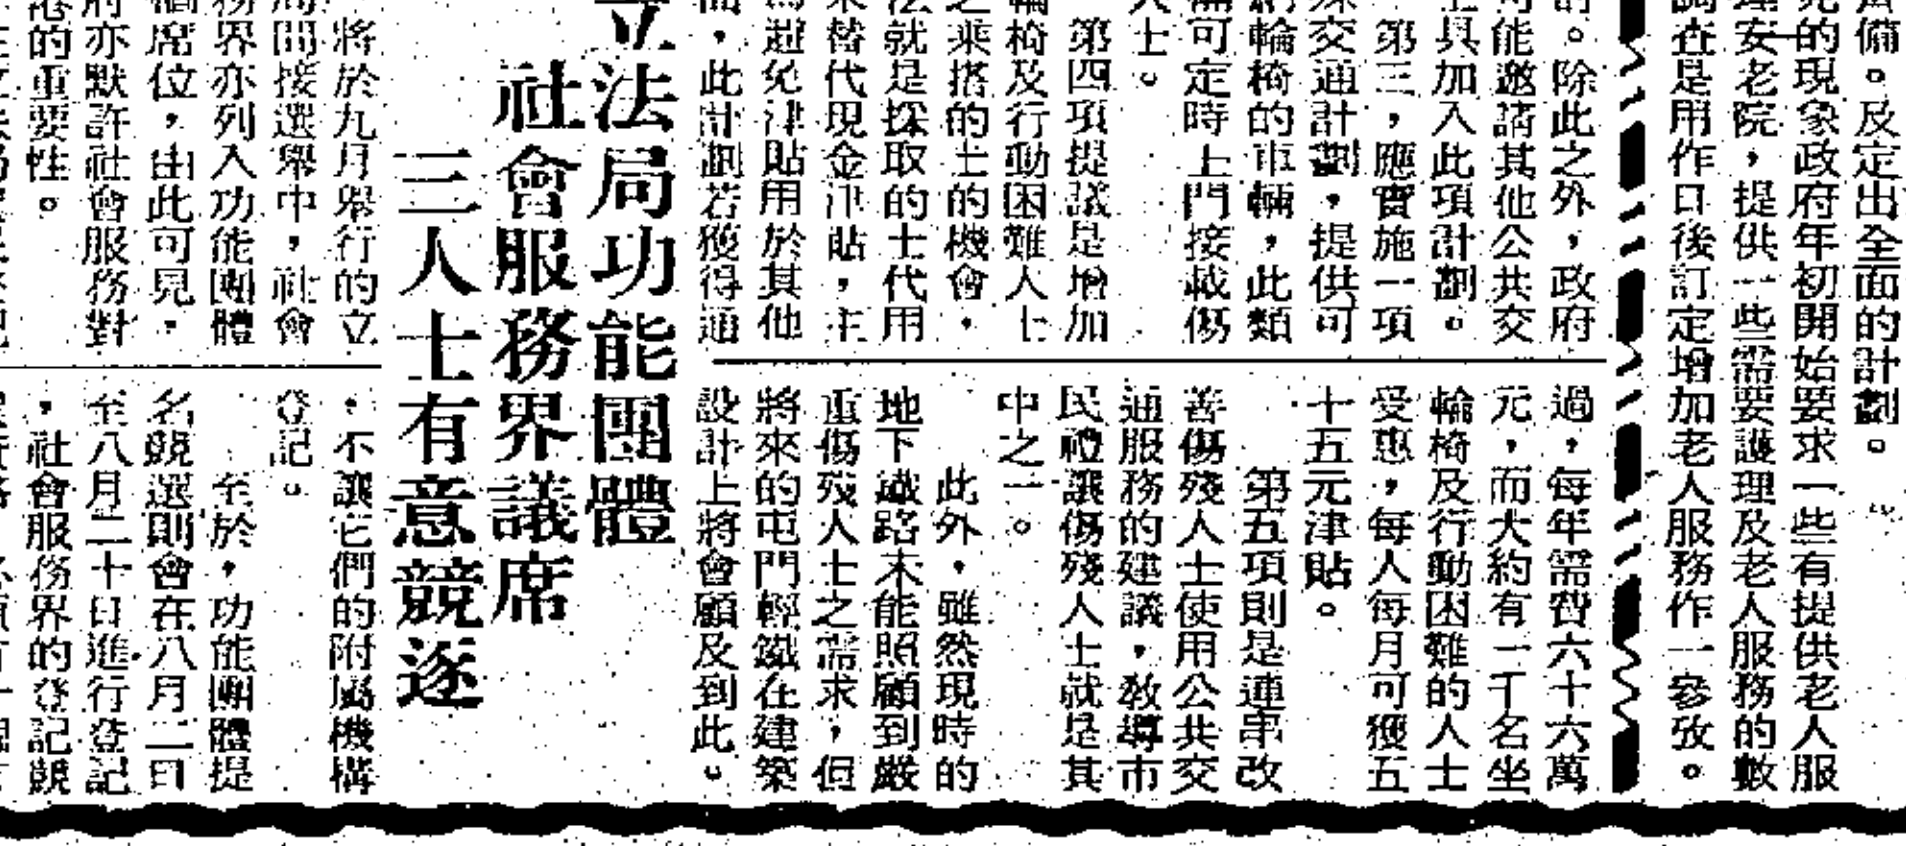 齊備。及定出全面的計劃。
究的現象政府年初開始要求一些有提供老人服
理安老院,提供一些需要護理及老人服務的數
調查是用作日後訂定增加老人服務作一參攷。
討。除此之外,政府
可能邀請其他公共交
具加入此項計劃。
第三,應實施一項
殊交通計劃,提供可
納輪椅的車輛,此類
需可定時上門接載傷
人士。
第四項提議是增加
輪椅及行動困難人士
之乘搭的士的機會,
法就是採取的士代用
來替代現金津貼,主
為避免津貼用於其他
面,此計劃若獲得通
過,每年需費六十六萬
元,而大約有一千名坐
輪椅及行動困難的人士
受惠,每人每月可獲五
十五元津貼。
第五項則是連串改
善傷殘人士使用公共交
通服務的建議,教導市
民禮讓傷殘人士就是其
中之一。
此外,雖然現時的
地下鐵路未能照顧到嚴
重傷殘人士之需求,但
將來的屯門輕鐵在建築
設計上將會顧及到此。
立法局功能團體
社會服務界議席
三人士有意競逐
將於九月舉行的立
局間接選舉中,社會
務界亦列入功能團體
個席位,由此可見,
府亦默許社會服務對
港的重要性。
,不讓它們的附屬機構
登記。
至於,功能團體提
名競選則會在八月二日
至八月二十日進行登記
,社會服務界的登記競